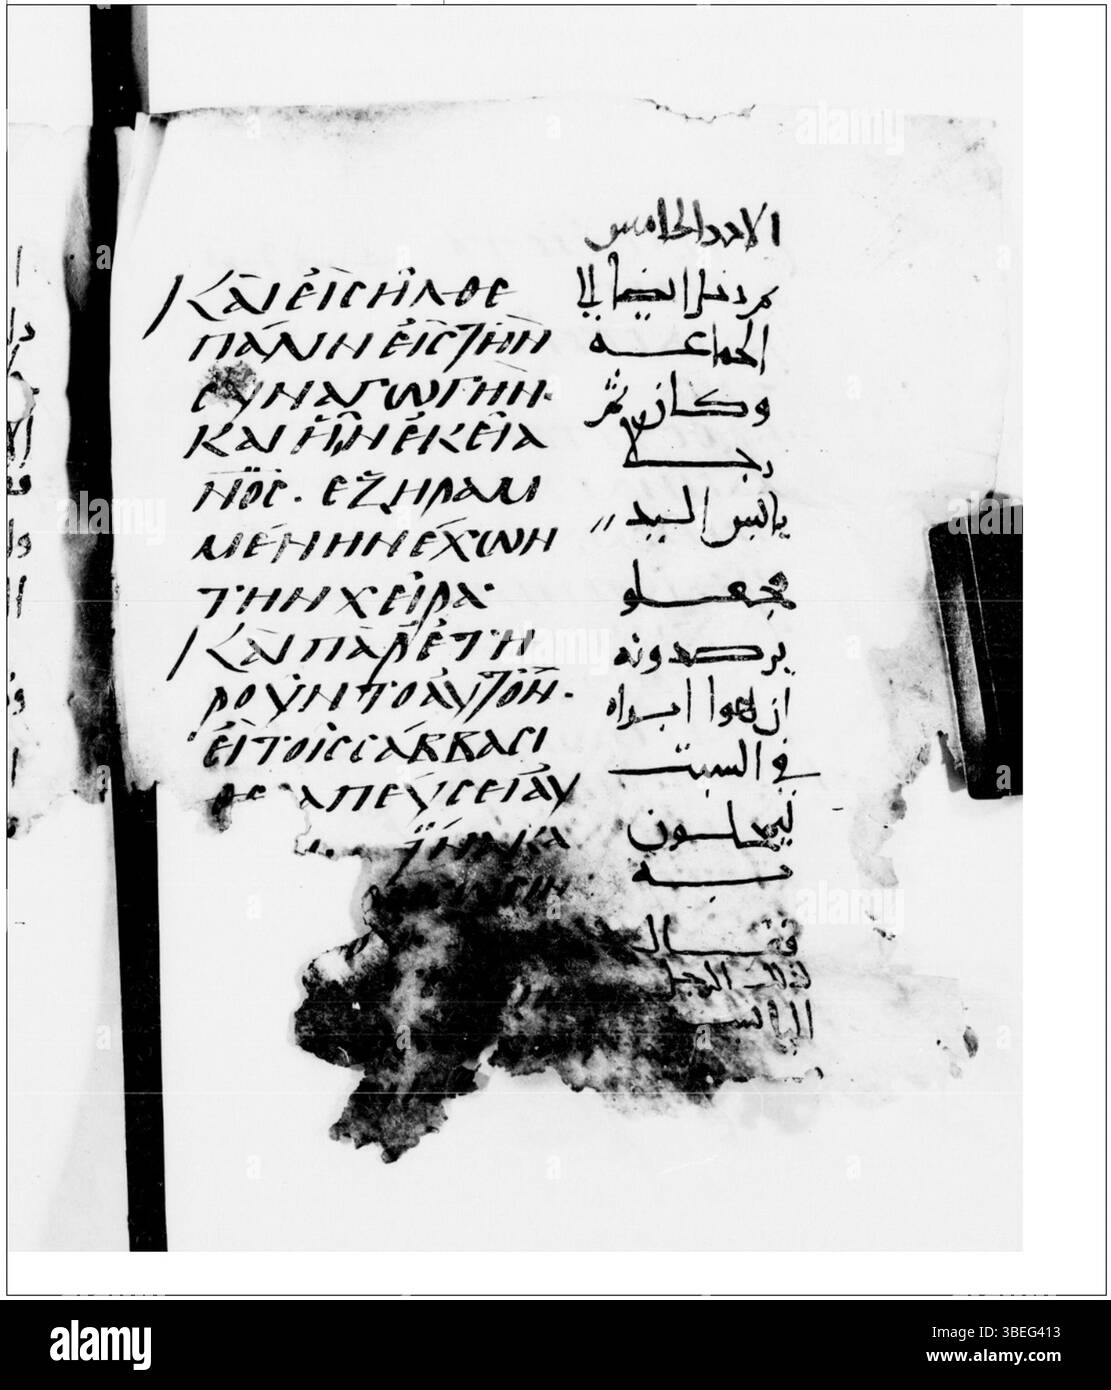 الاحد الخامس
ΚΑΙ ΕΙCΗΛΘΕ
ΠΑΛΙΝ ΕΙC ΤΗΝ
CΥΝΑΓΩΓΗΝ·
ΚΑΙ ΗΝ ΕΚΕΙ Α
ΝΟC· ΕΞΗΡΑΜ
ΜΕΝΗΝ ΕΧΩΝ
ΤΗΝ ΧΕΙΡΑ·
ΚΑΙ ΠΑΡΕΤΗ
ΡΟΥΝΤΟ ΑΥΤΟΝ·
ΕΙ ΤΟΙC CΑΒΒΑCΙ
ΘΕ ΑΠΕΥCΕΙ ΑΥ
ودخل ايضا الى
الجماعه
وكان ثم
رجلا
يابس اليد
فجعلوا
يرصدونه
ان هوا ابراه
في السبت
ليمحلون
به
فقال
لذلك الرجل
اليابس
alamy
Image ID: 3BEG413
www.alamy.com